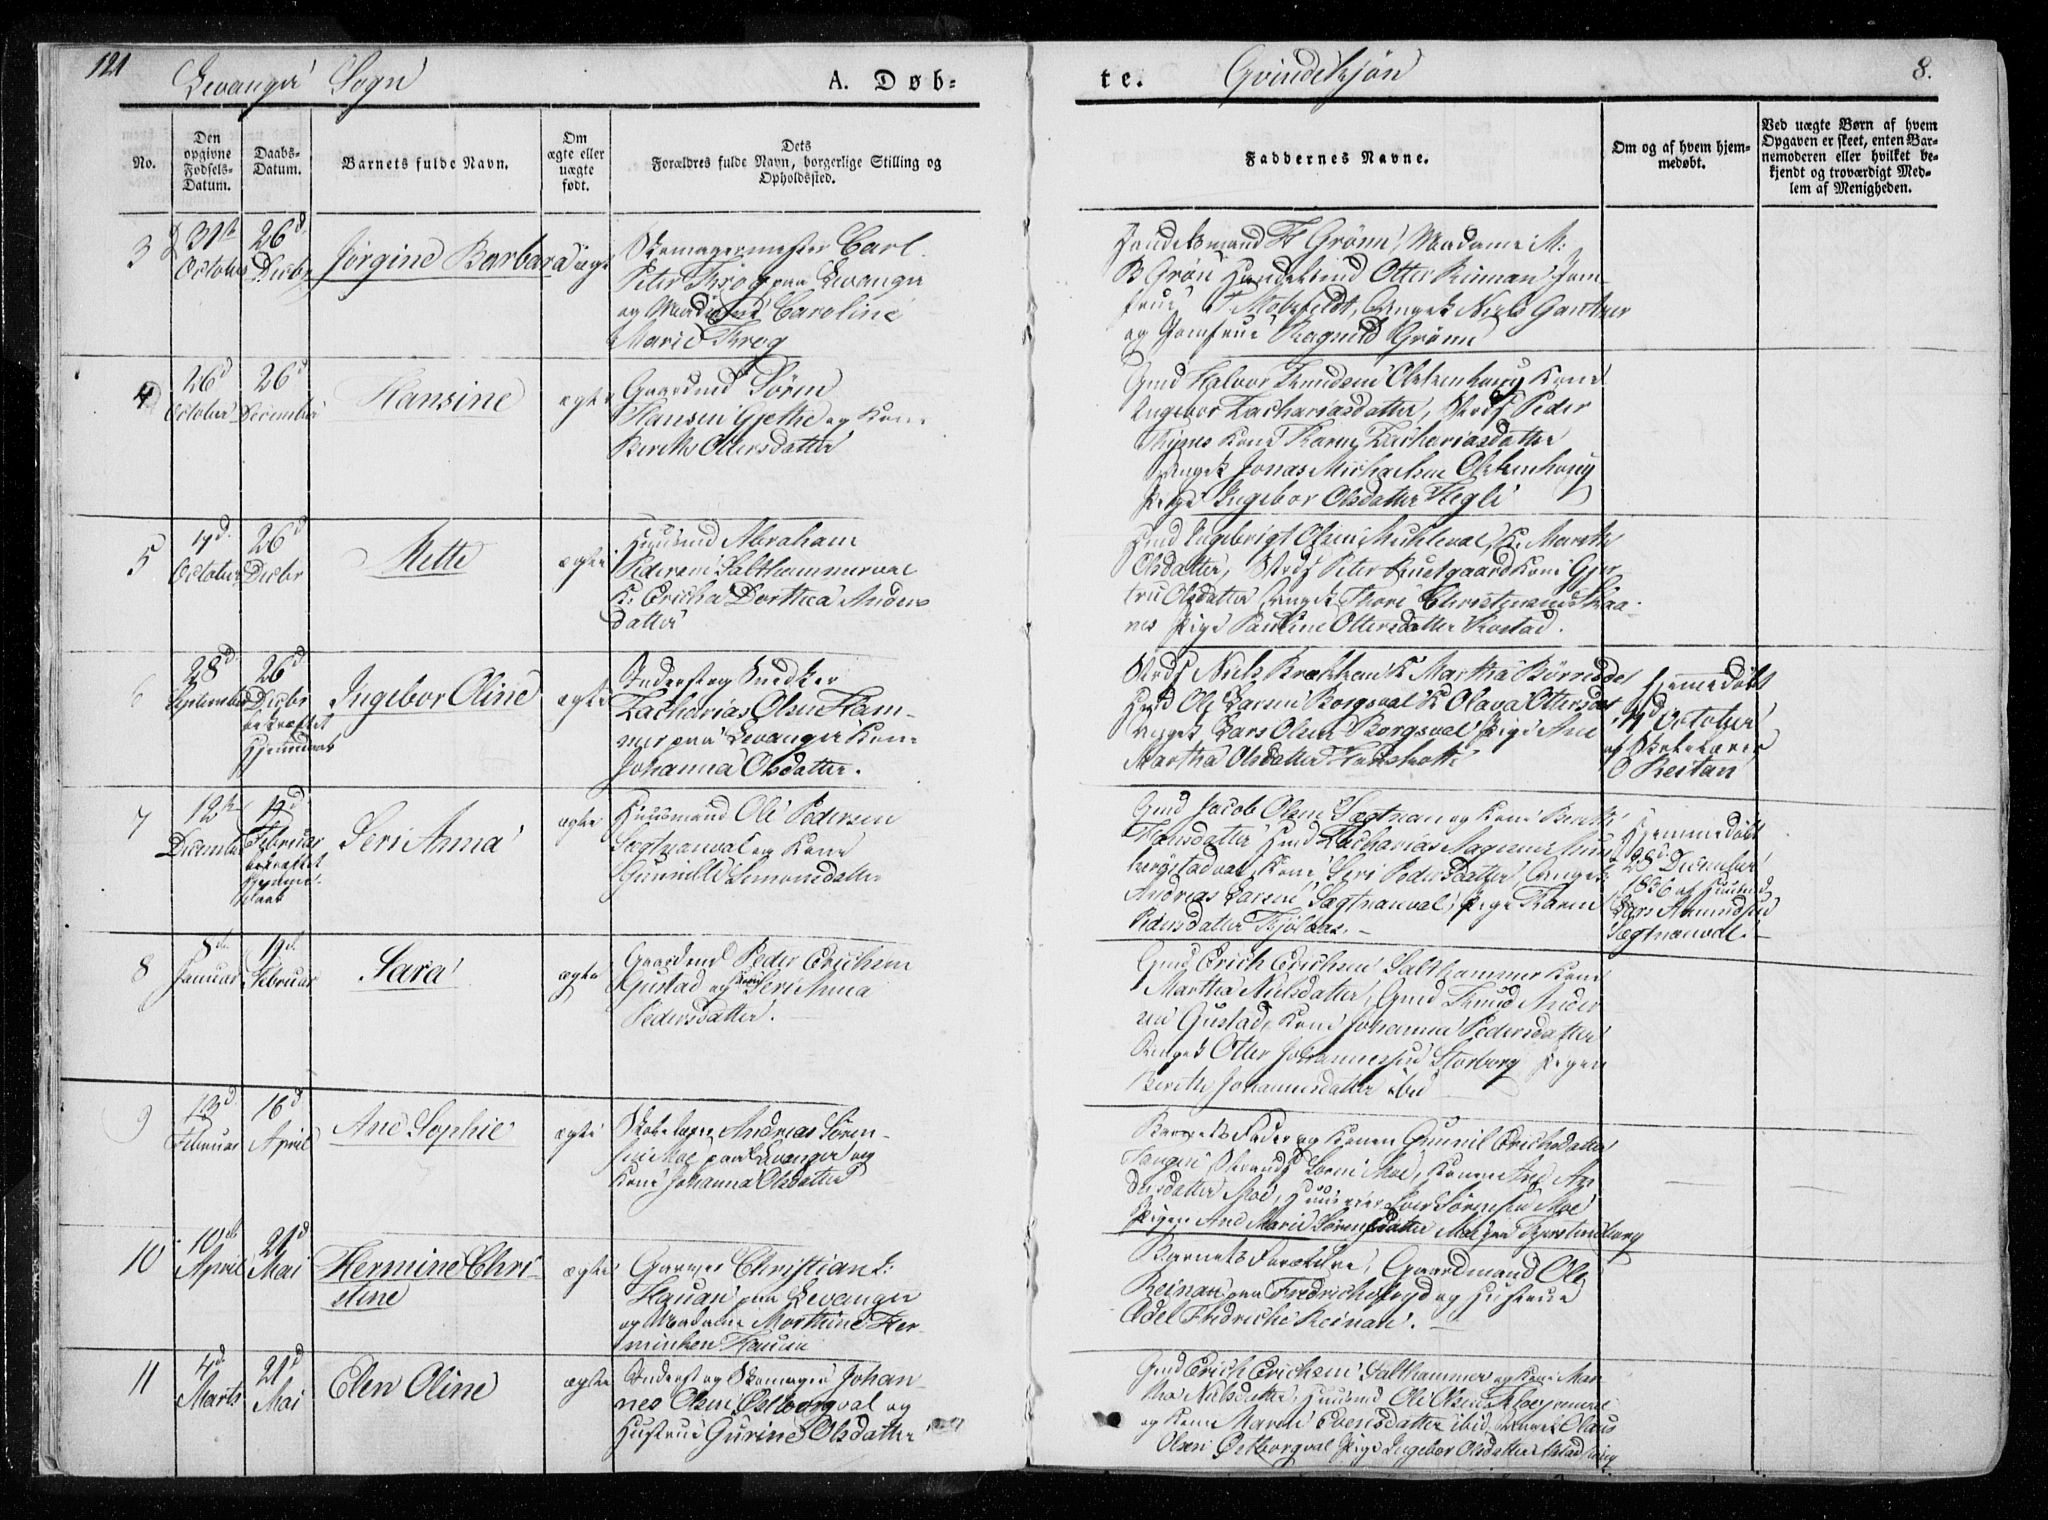 121
Levanger Sogn
A. Døb-
te.
Qvindekjøn
8.
No.
Den opgivne Fødsels-Datum.
Daabs-Datum.
Barnets fulde Navn.
Om ægte eller uægte født.
Dets Forældres fulde Navn, borgerlige Stilling og Opholdssted.
Faddernes Navne.
Om og af hvem hjemmedøbt.
Ved uægte Børn af hvem Opgaven er skeet, enten Barnemoderen eller hvilket bekjendt og troværdigt Medlem af Menigheden.
3
31te
October
26d
Decbr
Jørgine Barbara
ægte
Skomagermester Carl
Peter Krog paa Levanger
og Madame Caroline
Marie Krog
Handelsmand Grønn, Madame M:
B Grøn Otter Reiman Jom-
frue Motzfeldt, Ungek Niels Gartner
og Jomfrue Ragnild Grønn
4
26d
October
26d
December
Hansine
ægte
Gaardmd Søren
Hansen Gjethe og Kone
Bereths Ottersdatter
Gmd Halvor Knudsen Kone
Ingebor Zachariasdatter, Peder
Kone Karen Zachariasdatter
Ungek Jonas Michaelsen
Pige Ingebor Olsdatter Hegle
5
7d
October
26d
Decbr
Mette
ægte
Huusmd Abraham
Pedersen Salthammerval
K: Ericha Dorthea Anders
datter
Hmd Ingebrigt Olsen K: Marethe
Olsdatter, Peter Kone Gjer-
tru Olsdatter Ungek Thore Christensen Skaa-
nes Pige Pauline Ottersdatter Rostad.
6
28d
September
26d
Decbr
bekræftet
Hjemmedaab
Ingebor Oline
ægte
Inderst og Snedker
Zacharias Olsen Ham-
mer paa Levanger Kone
Johanna Olsdatter.
Niels Brakken K Martha Børresdt
Hmd Ole Larsen Borgsval K Olava Ottersdat
Ungek Lars Olsen Borgsval Pige Ane
Martha Olsdatter
Hjemmedøbt
October
af Skolelærer
O Reitan
7
12te
December
19d
Februar
bekræftet
Hjemme-
daab
Seri Anna
ægte
Huusmand Ole Pedersen
Sægtnanval og Kone
Gunnille Simonsdatter
Gmd Jacob Olsen Sægtnan og Kone Bereth
Hansdatter Hmd Zacharias
Kone Seri Pedersdatter, Ungek:
Andreas Larsen Sægtnanval, Pige Karen
Pedersdatter Kjølaas.
Hjemmedøbt
28d December
1836 af Huusmd
Lars Amundsen
Sægtnanval.
8
5te
Januar
19d
Februar
Sara
ægte
Gaardmd Peder Erichsen
Gustad og Kone Seri Anna
Pedersdatter.
Gmd Erich Erichsen Salthammer Kone
Martha Nielsdatter, Gmd Knud Ander-
sen Gustad, Kone Johanna Pedersdatter
Ungek Otter Johannessen Storborg Pigen
Berethe Johannesdatter ibid
9
13d
Februar
16d
April
Ane Sophie
ægte
Skolelærer Andreas Søren-
sen Moe paa Levanger og
Kone Johanna Olsdatter
Barnets Fader og Konen Gunnil Erichsdatter
Tangen, Søren Moe, Konen Ane An-
dersdatter Moe, Iver Sørensen Moe
Pigen Ane Marie Sørensdatter Moe
10
10de
April
21d
Mai
Hermine Chri-
stine
ægte
Garver Christian L:
Hauan paa Levanger
og Madame Morthine Her-
minken Hauan
Barnets Forældre, Gaardmand Ole
Reinan paa Fredrichshøyd og Hustrue
Edel Fredriche Reinan.
11
4d
Marts
21d
Mai
Elen Oline
ægte
Inderst og Skomager Johan-
nes Olsen Østborgval og
Hustrue Gurine Olsdatter
Gmd Erich Erichsen Salthammer og Kone Mar-
tha Nielsdatter, Huusmd Ole Olsen
og Kone Marith Evensdatter ibid, Ungek Olaus
Olsen Østborgval Pige Ingebor Olsdatter